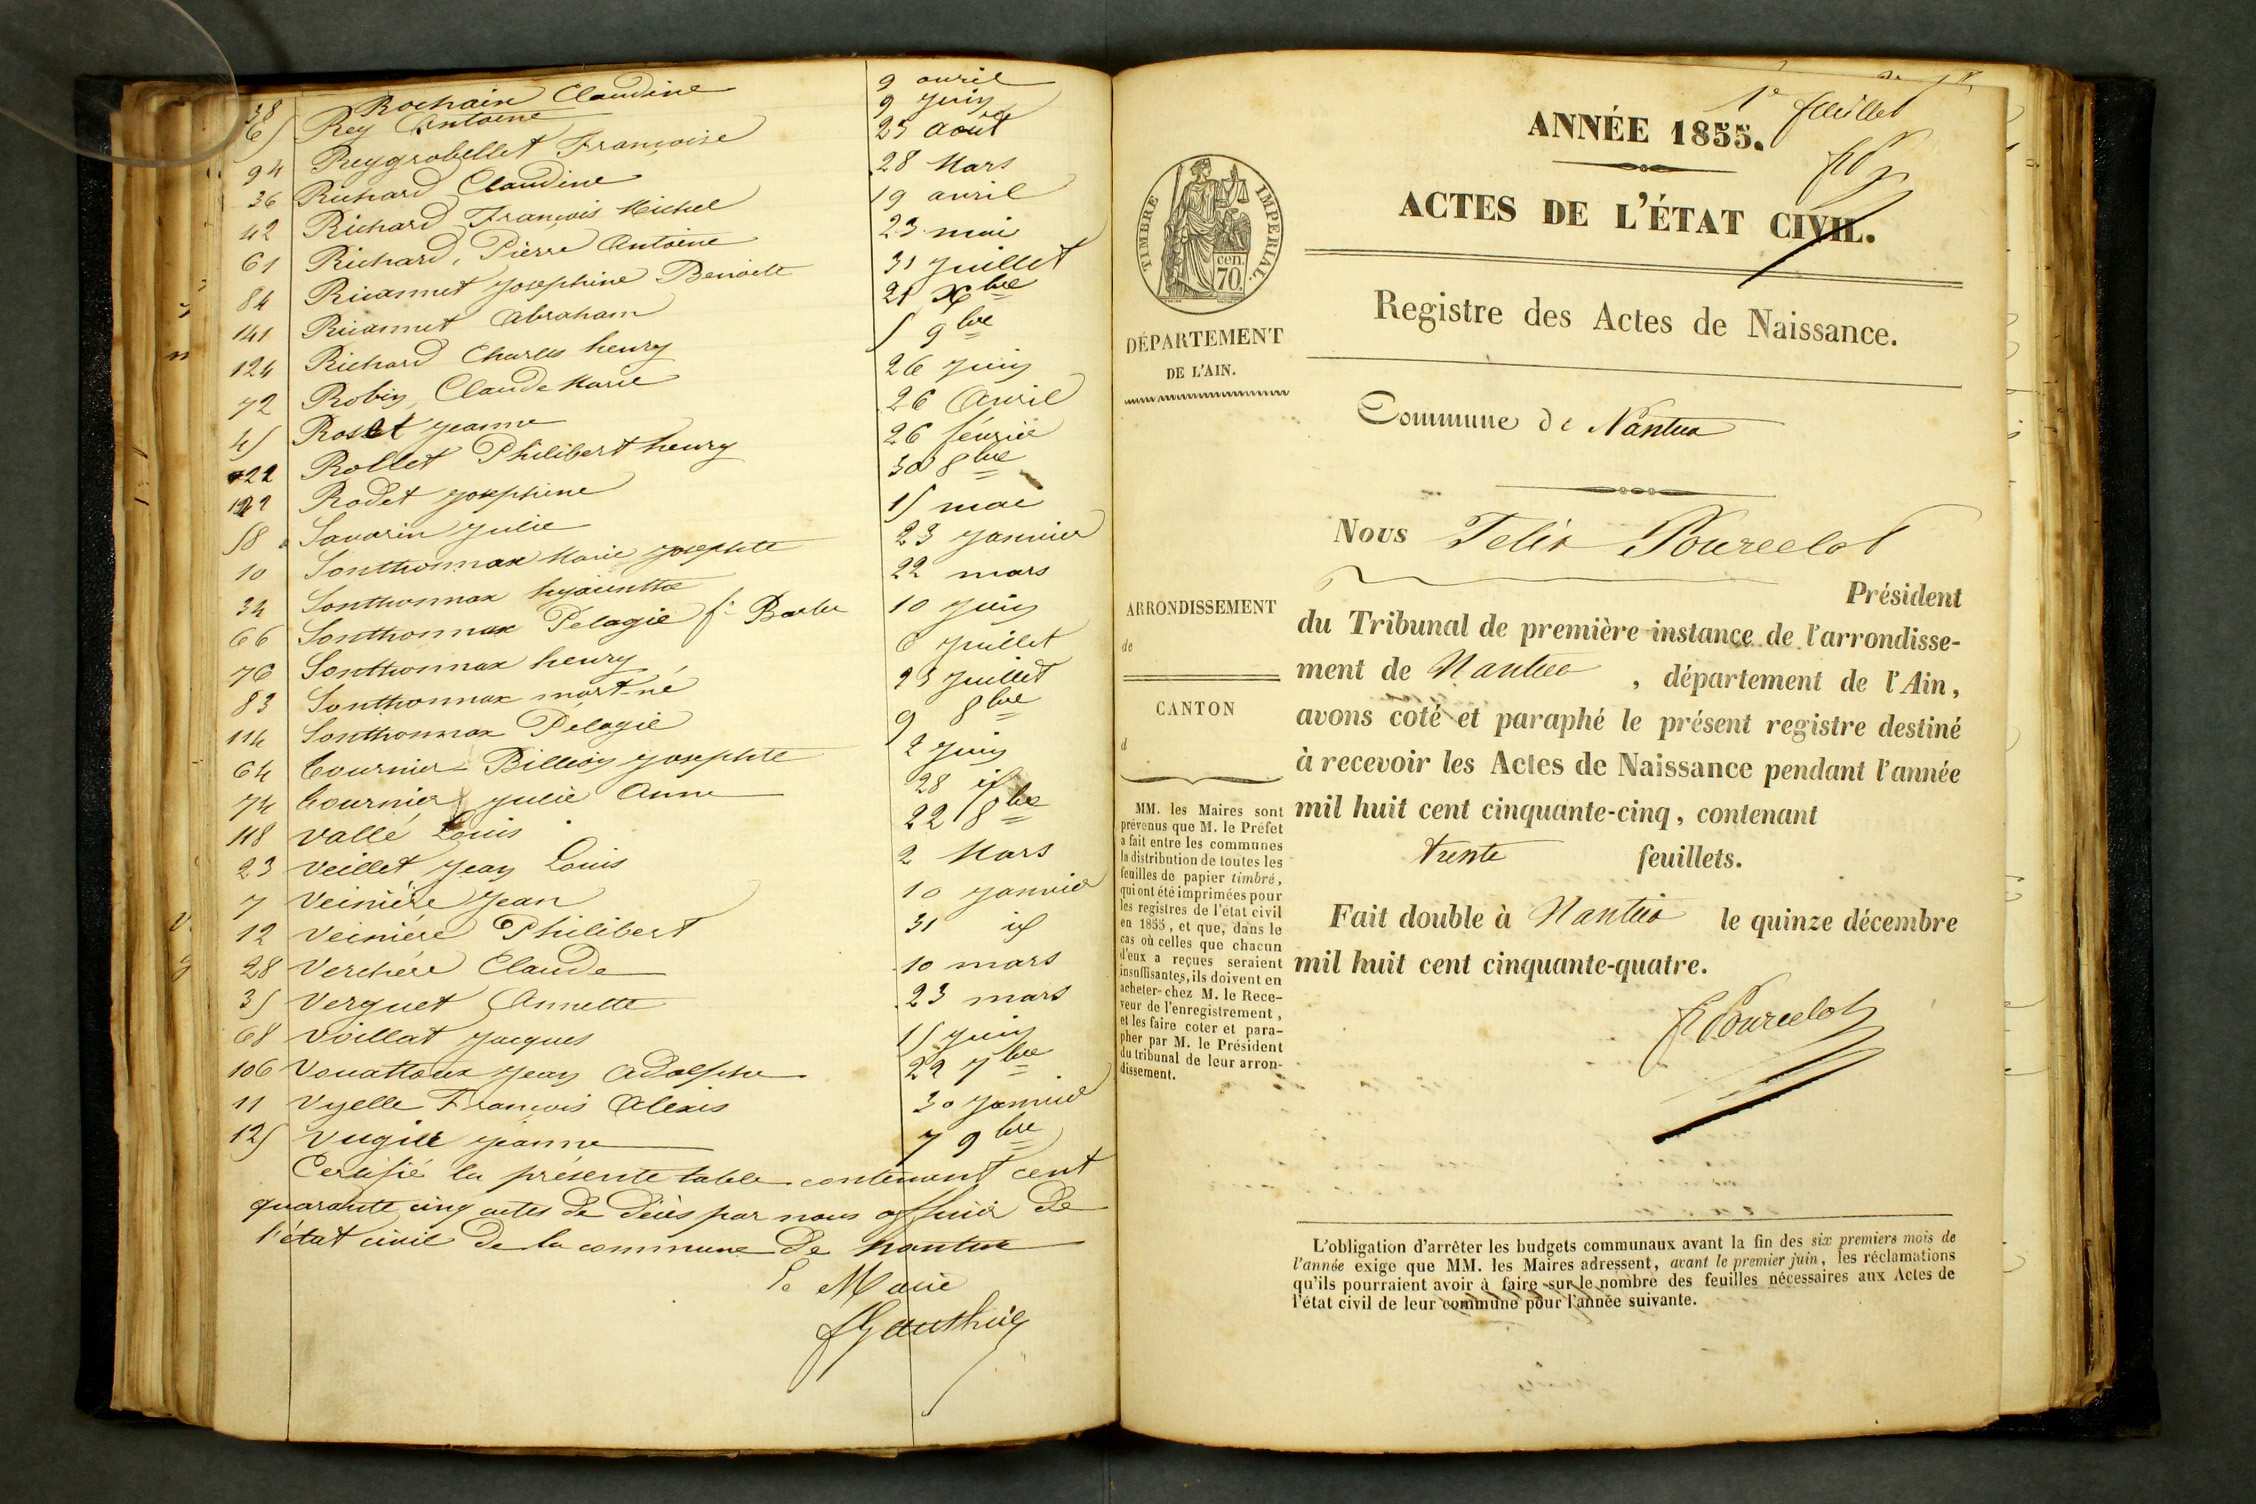 38 Rochaix Claudine 9 avril
65 Rey Antoine 9 juin
94 Reygrobellet Françoise 25 août
36 Richard Claudine 28 Mars
42 Richard François Michel 19 avril
61 Richard, Pierre Antoine 23 mai
84 Ricannet Josephine Benoite 31 Juillet
141 Ricannet Abraham 21 Xbre
124 Richard Charles henry 5 9bre
72 Robin Claude Marie 26 Juin
45 Roslet Jeanne 26 Avril
22 Rollet Philibert henry 26 février
122 Rodet Josephine 30 8bre
58 Savarin Julie 15 mai
10 Sonthonnax Marie Josephte 23 Janvier
34 Sonthonnax hyacinthe 22 mars
66 Sonthonnax Pelagie fe 10 Juin
76 Sonthonnax henry 6 Juillet
83 Sonthonnax mort-né 23 Juillet
114 Sonthonnax Pélagie 9 8bre
64 tournier-Billion Josephte 2 Juin
74 tournier Julie Anne 28 id
118 vallé Louis 22 8bre
23 veillet Jean Louis 2 Mars
7 veinière Jean 10 Janvier
12 veinière Philibert 31 id
28 Verchère Claude 10 mars
35 Verguet Annette 23 mars
68 voillat Jacques 15 Juin
106 Vouattoux Jean Adolphe 22 7bre
11 Vyelle François Alexis 30 Janvier
125 Jeanne 7 9bre
Certifié la présente table contenant cent
quarante cinq actes de décès par nous officier de
l'état civil de la commune de nantua
Le Maire
1e feuillet
ANNÉE 1855.
ACTES DE L'ÉTAT CIVIL.
TIMBRE IMPERIAL.
70. cen.
Registre des Actes de Naissance.
DÉPARTEMENT
DE L'AIN.
Commune de Nantua
Nous Felix Pourcelot
Président
ARRONDISSEMENT
de
CANTON
d
du Tribunal de première instance de l'arrondisse-
ment de Nantua , département de l'Ain,
avons coté et paraphé le présent registre destiné
à recevoir les Actes de Naissance pendant l'année
mil huit cent cinquante-cinq, contenant
trente feuillets.
Fait double à Nantua le quinze décembre
mil huit cent cinquante-quatre.
F Pourcelot
MM. les Maires sont
prévenus que M. le Préfet
a fait entre les communes
la distribution de toutes les
feuilles de papier timbré,
qui ont été imprimées pour
les registres de l'état civil
en 1855, et que, dans le
cas où celles que chacun
d'eux a reçues seraient
insuffisantes, ils doivent en
acheter chez M. le Rece-
veur de l'enregistrement,
et les faire coter et para-
pher par M. le Président
du tribunal de leur arron-
dissement.
L'obligation d'arrêter les budgets communaux avant la fin des six premiers mois de
l'année exige que MM. les Maires adressent, avant le premier juin, les réclamations
qu'ils pourraient avoir à faire sur le nombre des feuilles nécessaires aux Actes de
l'état civil de leur commune pour l'année suivante.